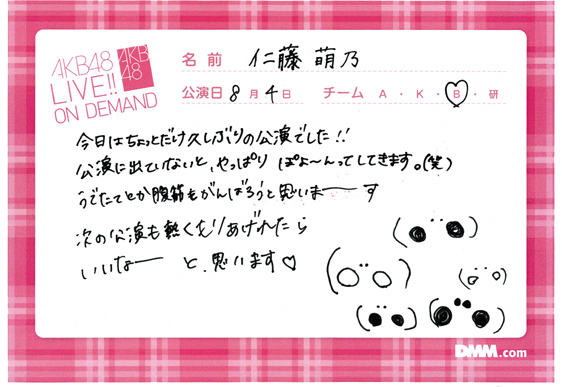 AKB48
LIVE!!
ON DEMAND
AKB
48
名前 仁藤 萌乃
公演日 8月4日 チーム A・K・B・研
今日はちょっとだけ久しぶりの公演でした!!
公演に出ていないと、やっぱり ぽよ〜んってしてきます。(笑)
うでたてとか腹筋もがんばろうと思いまーーす
次の公演も熱くもりあげれたら
いいなーー と、思います♡
DMM.com